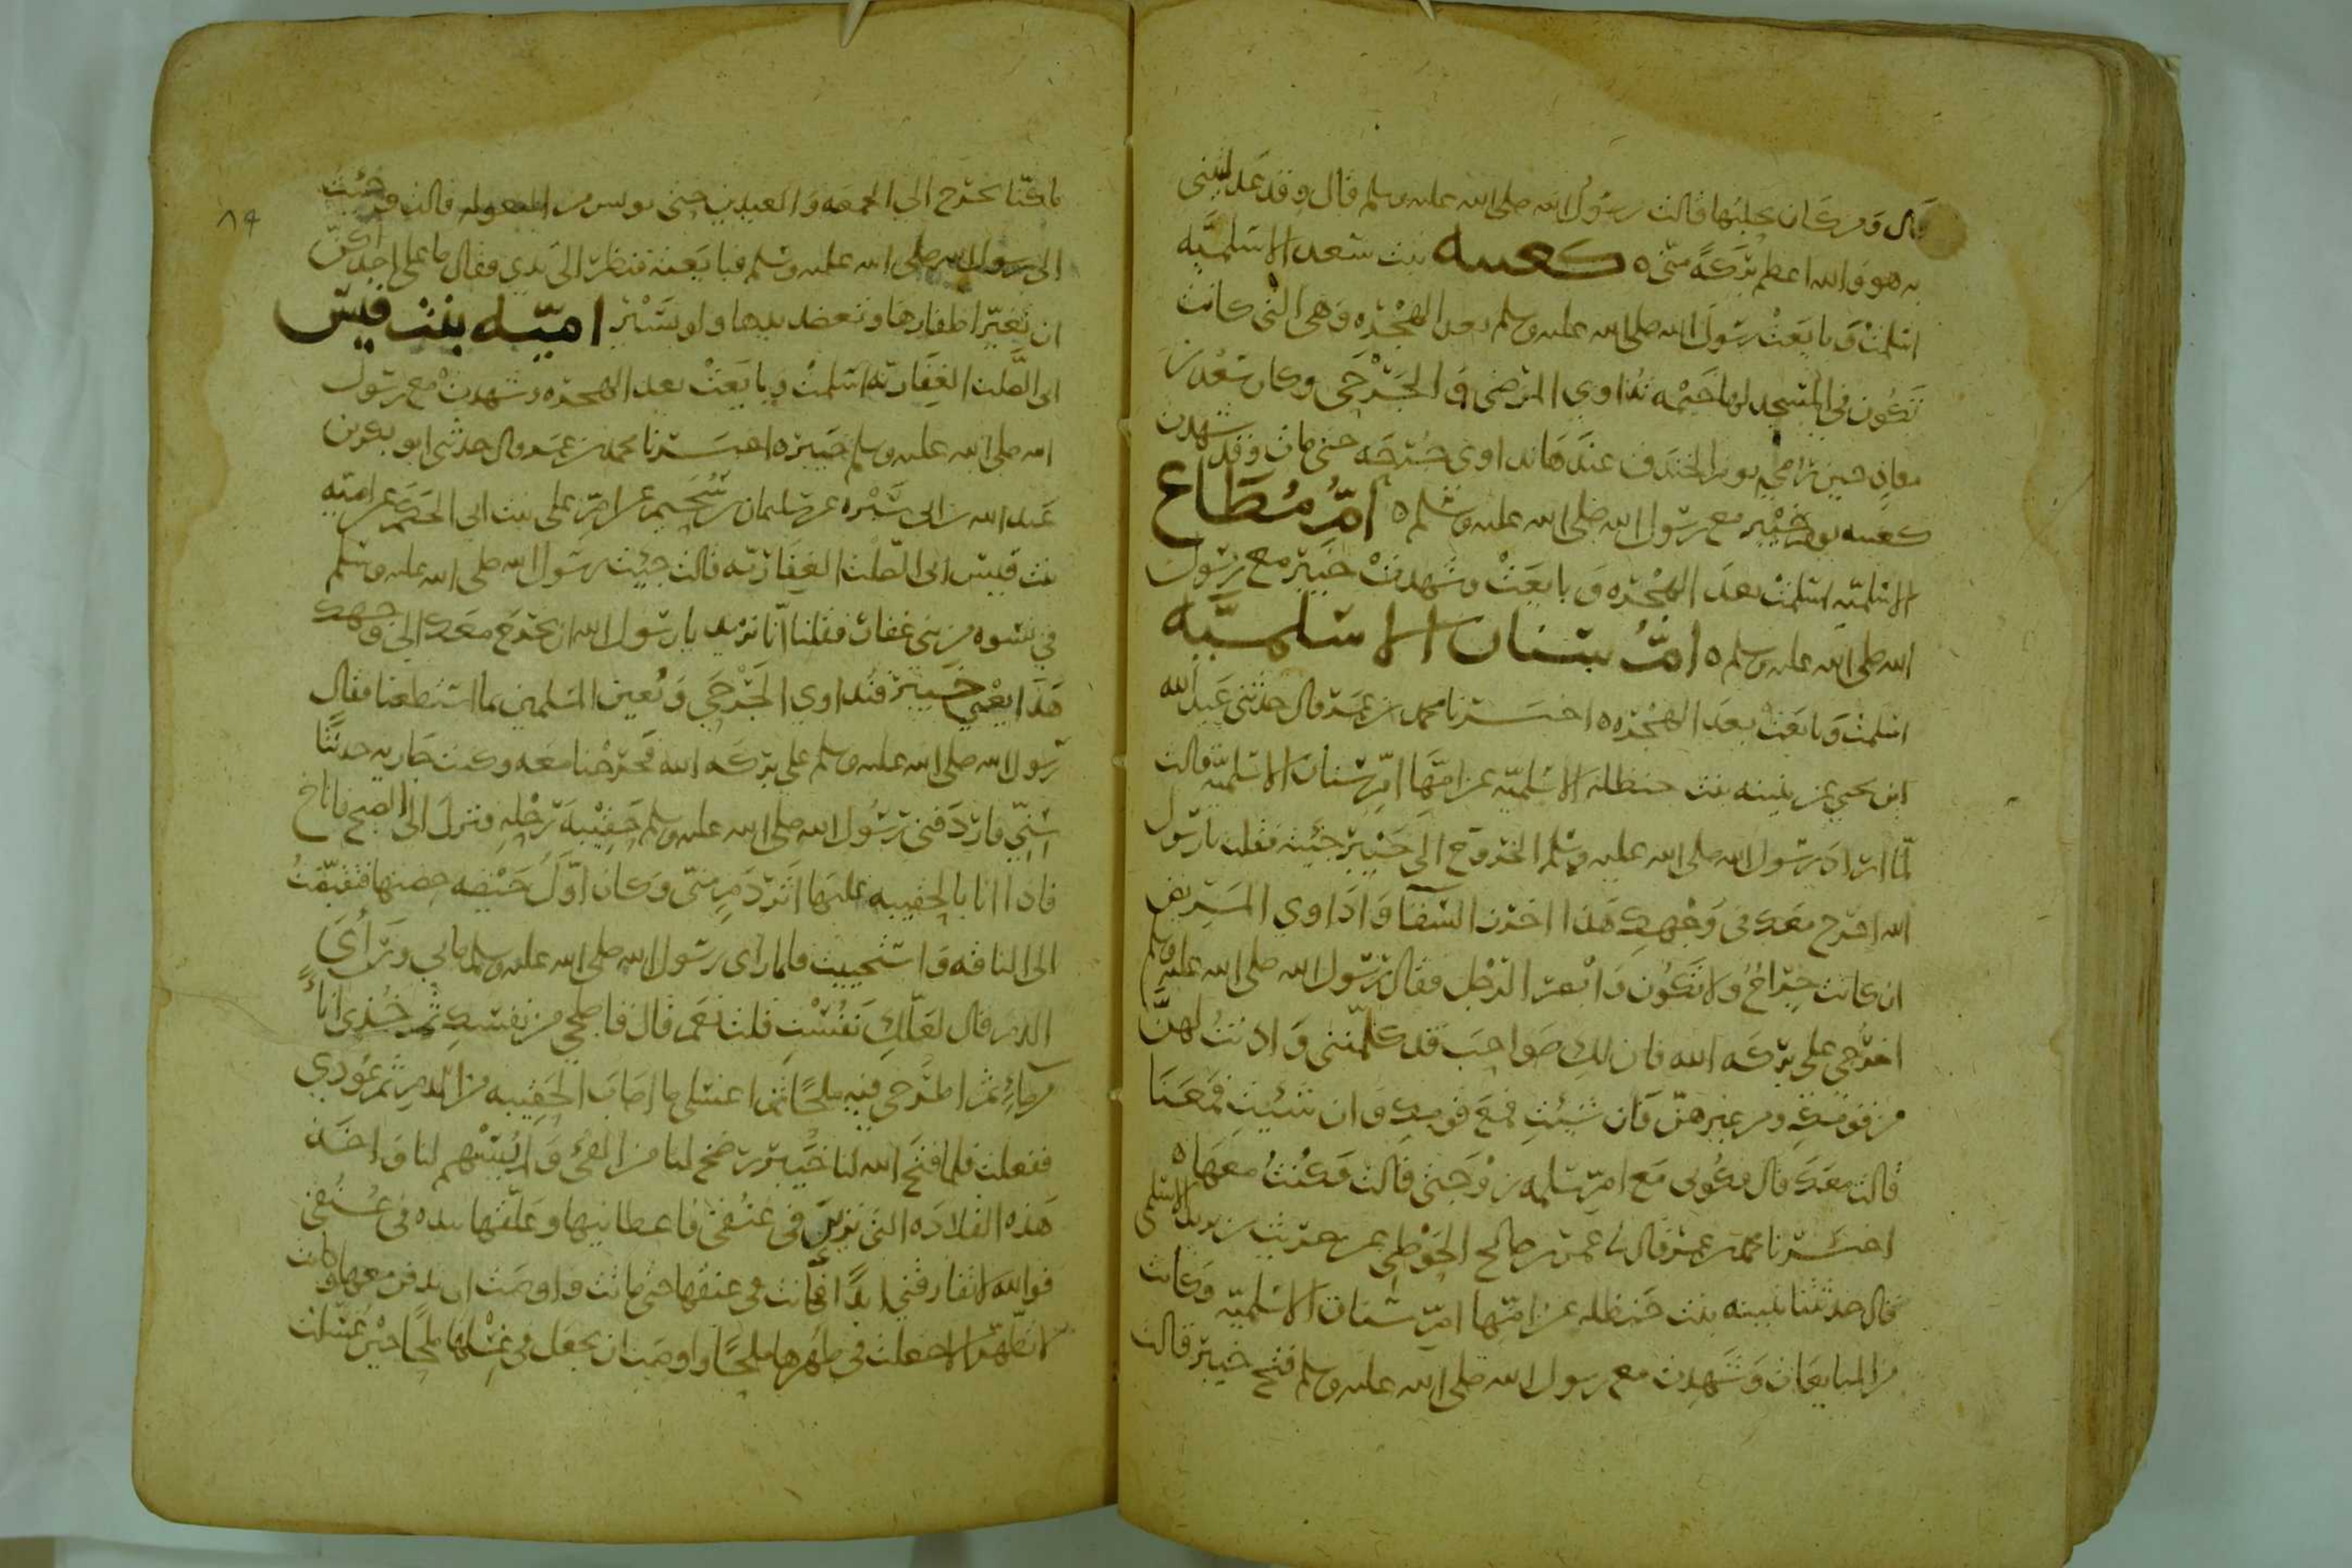 قال ومن كان يحلبها قالت رسول الله صلى الله عليه وسلم قال وقد عدلتيني
به هو والله اعظم بركة مني ه كعيبه بنت سعد الاسلميه
اسلمت وبايعت رسول الله صلى الله عليه وسلم بعد الهجره وهي التي كانت
تكون في المسجد لها خيمه تداوي المرضى والجرحى وكان سعد بن
معاذ حين رمي يوم الخندق عندها تداوي جرحه حتى مات وقد شهدت
كعيبه يوم خيبر مع رسول الله صلى الله عليه وسلم ه ام مطاع
الاسلميه اسلمت بعد الهجره وبايعت وشهدت خيبر مع رسول
الله صلى الله عليه وسلم ه ام سنان الاسلميه
اسلمت وبايعت بعد الهجره ه اخبرنا محمد بن عمر قال حدثني عبد الله
ابن يحيى عن ثبيته بنت حنظله الاسلميه عن امها ام سنان الاسلميه قالت
لما اراد رسول الله صلى الله عليه وسلم الخروج الى خيبر جئته فقلت يا رسول
الله اخرج معك في وجهك هذا اخرز السقا واداوي المريض
ان كانت جراح ولا تكون وابصر الرحل فقال رسول الله صلى الله عليه وسلم
اخرجي على بركه الله فان لك صواحب قد كلمنني واذنت لهن
من قومك ومن غيرهن فان شئت فمع قومك وان شئت فمعنا
قالت معك قال فكوني مع ام سلمه زوجتي قالت فكنت معها ه
اخبرنا محمد بن عمر قال عمر بن صالح الحوطي عن حريث بن يزيد الاسلمي
قال حدثتنا ثبيته بنت حنظله عن امها ام سنان الاسلميه وكانت
من المبايعات وشهدت مع رسول الله صلى الله عليه وسلم فتح خيبر قالت
٨٩
ما كنا نخرج الى الجمعه والعيدين حتى نويس من البعوله قالت وجئت
الى رسول الله صلى الله عليه وسلم فبايعته فنظر الى يدي فقال ما على احداكن
ان تغير اظفارها وتعضد يدها ولو بسير اميه بنت قيس
ابي الصلت الغفاريه اسلمت وبايعت بعد الهجره وشهدت مع رسول
الله صلى الله عليه وسلم خيبر ه اخبرنا محمد بن عمر قال حدثني ابو بكر بن
عبد الله بن ابي سبره عن سليمان بن سحيم عن ام علي بنت ابي الحكم عن اميه
بنت قيس ابي الصلت الغفاريه قالت جئت رسول الله صلى الله عليه وسلم
في نسوه من بني غفار فقلنا انا نريد يا رسول الله ان نخرج معك الى وجهك
هذا يعني خيبر فنداوي الجرحى ونعين المسلمين بما استطعنا فقال
رسول الله صلى الله عليه وسلم على بركه الله فخرجنا معه وكنت جاريه حدثتا
سني فاردفني رسول الله صلى الله عليه وسلم حقيبه رحله فنزل الى الصبح فاناخ
فاذا انا بالحقيبه عليها اثر دم مني وكان اول حيضه حضتها فتقبضت
الى الناقه واستحييت فلما راى رسول الله صلى الله عليه وسلم ما بي وراى
الدم قال لعلك نفست قلت نعم قال فاصلحي من نفسك ثم خذي اناء
من ماء ثم اطرحي فيه ملحا ثم اغسلي ما اصاب الحقيبه من الدم ثم عودي
ففعلت فلما فتح الله لنا خيبر رضخ لنا من الفئ ولم يسهم لنا واخذ
هذه القلاده التي ترين في عنقي فاعطانيها وعلقها بيده في عنقي
فوالله لا تفارقني ابدا فكانت في عنقها حتى ماتت واوصت ان تدفن معها وكانت
لا تطهر الا جعلت في طهرها ملحا واوصت ان يجعل في غسلها ملحا حين غسلت